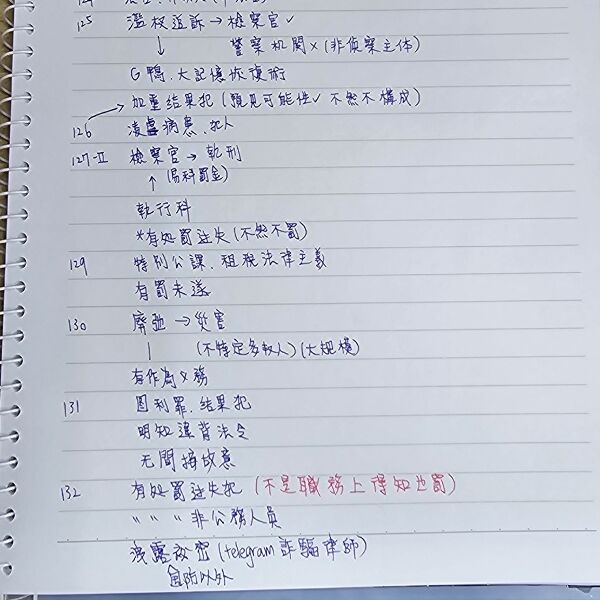 125 濫权追訴→檢察官✓
↓ 警察机関×(非偵察主体)
G鴨、大記憶恢復術
加重结果犯(預見可能性✓不然不構成)
126 凌虐病患、犯人
127-II 檢察官→乾刑
↑(易科罰金)
執行科
*有処罰过失(不然不罰)
129 特別公課、租税法律主義
有罰未遂
130 廢弛→災害
(不特定多数人)(大規模)
有作為义務
131 圖利罪、结果犯
明知違背法令
无間接故意
132 有処罰过失犯(不是職務上得知也罰)
〃 〃 〃 非公務人員
洩露祕密(telegram詐騙律師)
国防以外